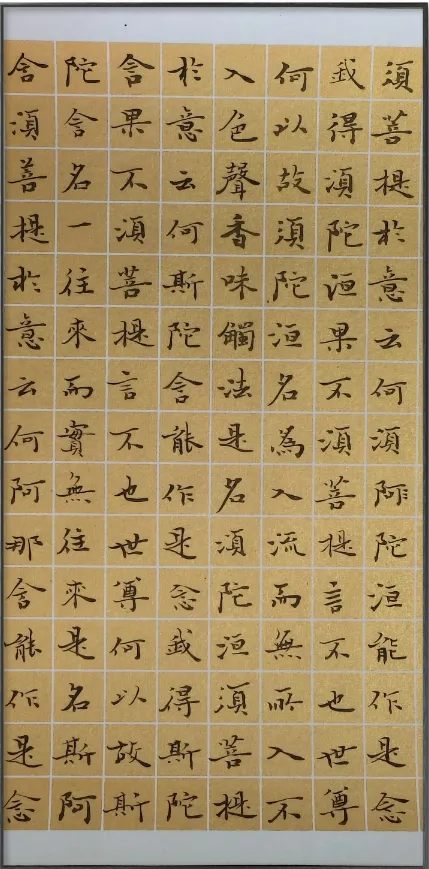 須菩提於意云何須陀洹能作是念
我得須陀洹果不須菩提言不也世尊
何以故須陀洹名為入流而無所入不
入色聲香味觸法是名須陀洹須菩提
於意云何斯陀含能作是念我得斯陀
含果不須菩提言不也世尊何以故斯
陀含名一往來而實無往來是名斯阿
含須菩提於意云何阿那含能作是念